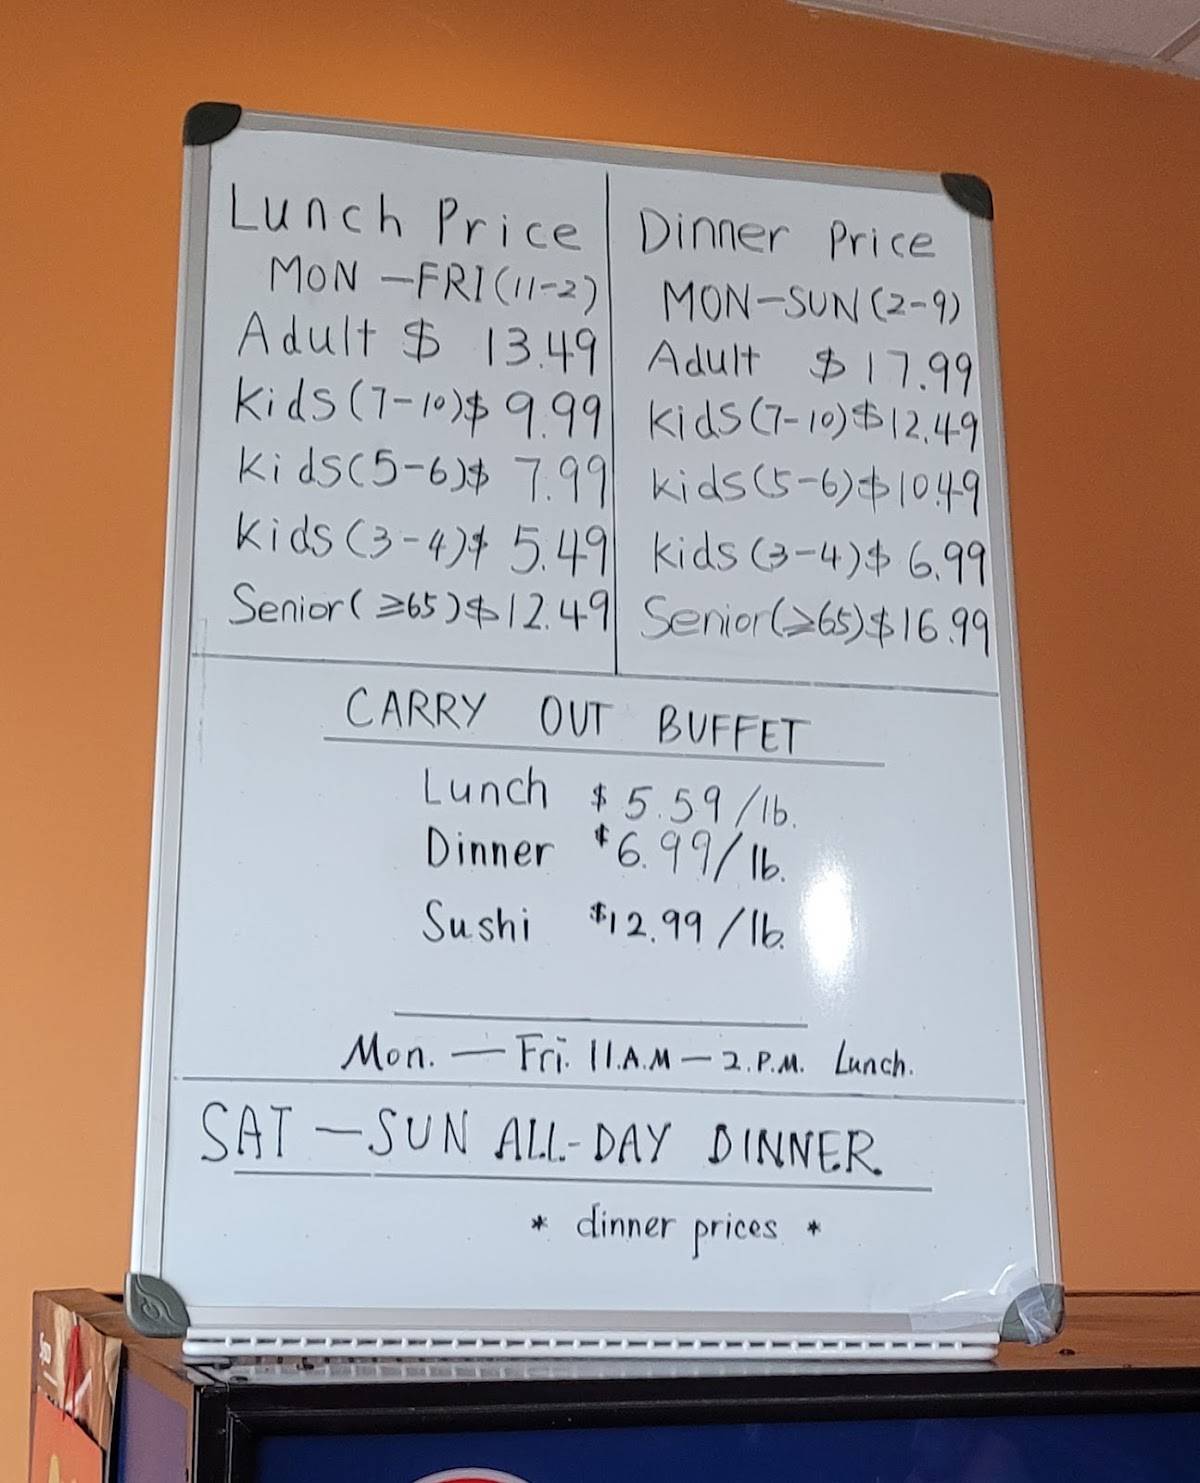 Lunch Price
MON-FRI(11-2)
Adult $ 13.49
Kids(7-10)$ 9.99
Kids(5-6)$ 7.99
Kids(3-4)$ 5.49
Senior(≥65)$12.49
Dinner Price
MON-SUN(2-9)
Adult $17.99
Kids(7-10)$12.49
Kids(5-6)$10.49
Kids(3-4)$ 6.99
Senior(≥65)$16.99
CARRY OUT BUFFET
Lunch $5.59/lb.
Dinner $6.99/lb.
Sushi $12.99/lb.
Mon. — Fri. 11.A.M — 2.P.M. Lunch.
SAT — SUN ALL-DAY DINNER.
* dinner prices *